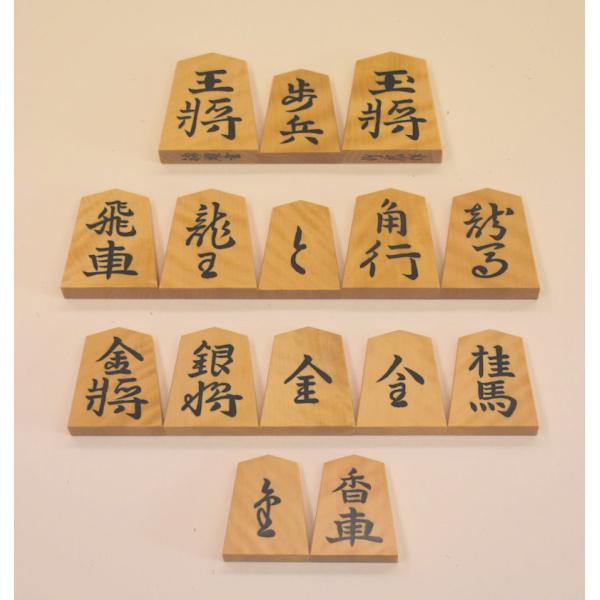 王將 歩兵 玉將
飛車 龍王 と 角行 龍馬
金將 銀将 全 金 桂馬
金 香車